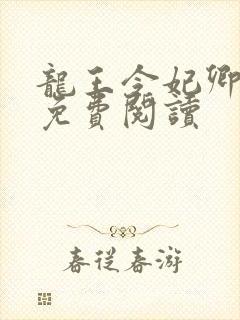 龍王令妃卿
免費閱讀
春從春游